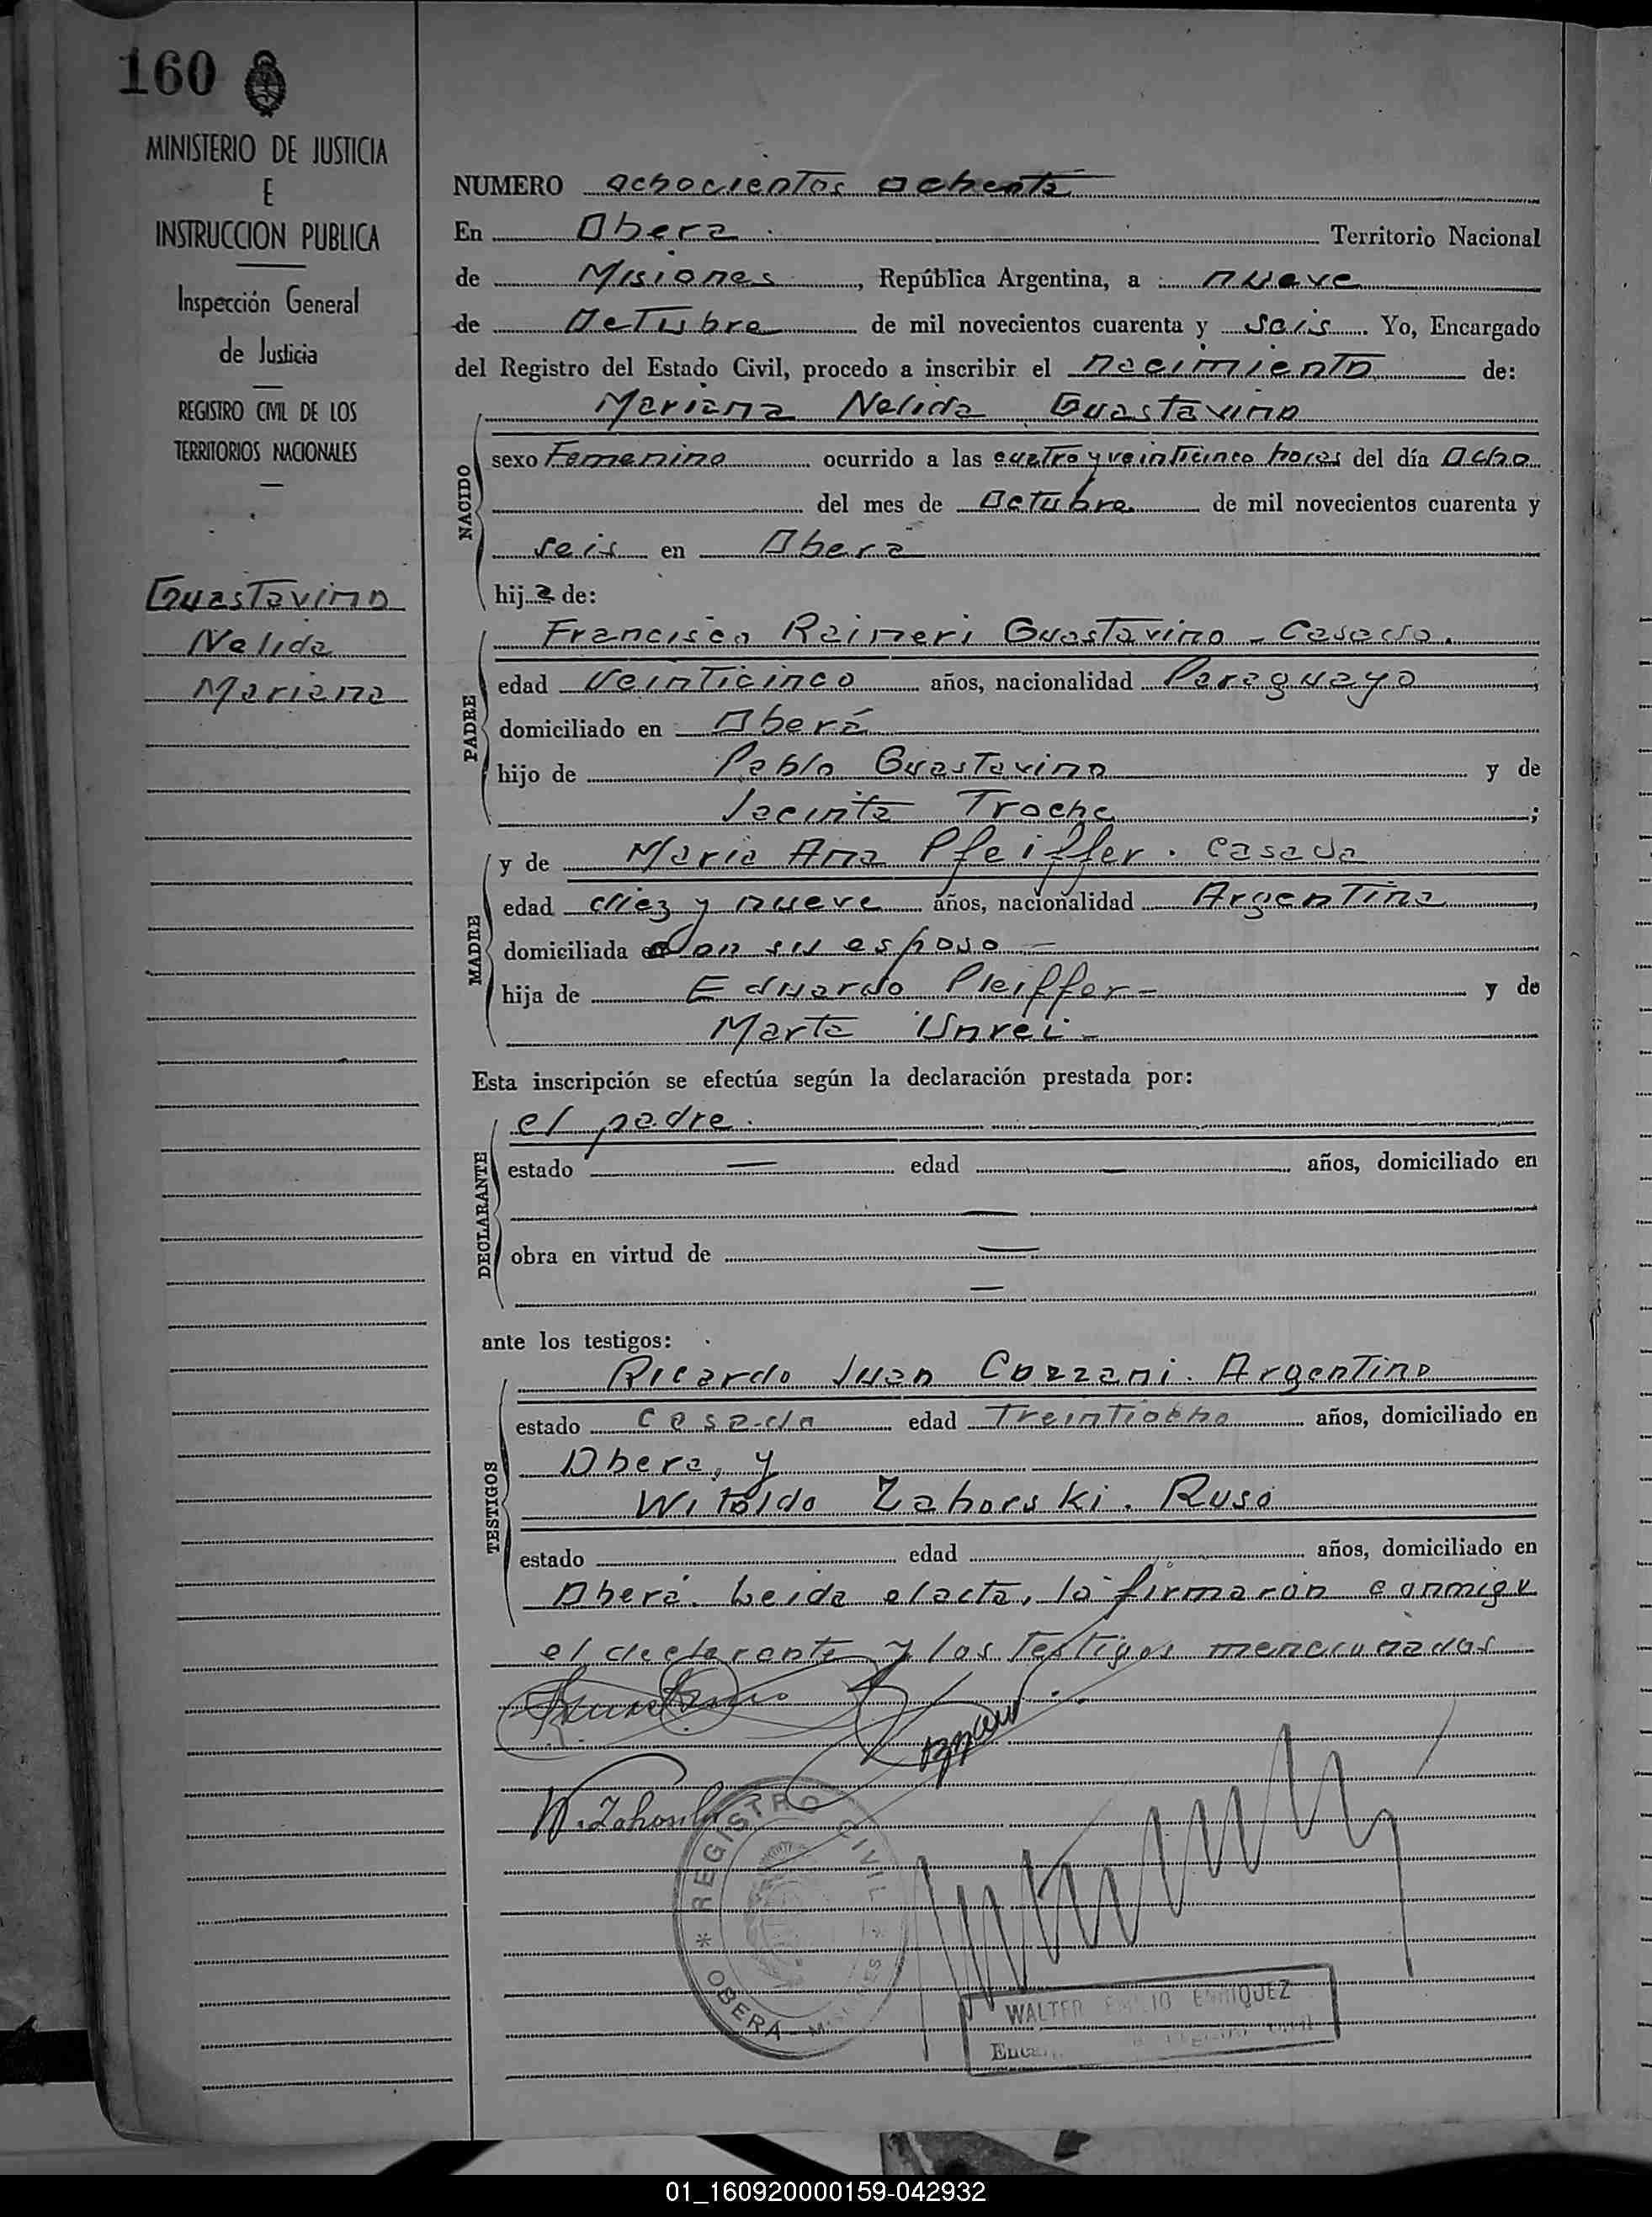 160
MINISTERIO DE JUSTICIA
E
INSTRUCCION PUBLICA
Inspección General
de Justicia
REGISTRO CIVIL DE LOS
TERRITORIOS NACIONALES
Guastavino
Nelida
Mariana
NUMERO ochocientos ochenta
En Obera Territorio Nacional
de Misiones, República Argentina, a nueve
de Octubre de mil novecientos cuarenta y seis. Yo, Encargado
del Registro del Estado Civil, procedo a inscribir el nacimiento de:
Mariana Nelida Guastavino
NACIDO
sexo Femenino ocurrido a las cuatro y veinticinco horas del día Ocho
del mes de Octubre de mil novecientos cuarenta y
seis en Oberá
hija de:
Francisco Raineri Guastavino - Casado.
PADRE
edad Veinticinco años, nacionalidad Paraguayo,
domiciliado en Oberá
hijo de Pablo Guastavino y de
Jacinta Troche;
y de Maria Ana Pfeiffer. Casada
MADRE
edad diez y nueve años, nacionalidad Argentina,
domiciliada con su esposo -
hija de Eduardo Pfeiffer - y de
Marta Unrei -
Esta inscripción se efectúa según la declaración prestada por:
el padre.
DECLARANTE
estado — edad — años, domiciliado en
—
obra en virtud de —
—
ante los testigos:
Ricardo Juan Cozzani. Argentino
TESTIGOS
estado Casado edad Treintiocho años, domiciliado en
Obera, y
Witoldo Zahorski. Ruso
estado edad años, domiciliado en
Oberá. Leida el acta, la firmaron conmigo
el declarante y los testigos mencionados
W. Zahorski
REGISTRO CIVIL
* OBERA - MISIONES *
WALTER EMILIO ENRIQUEZ
01_160920000159-042932